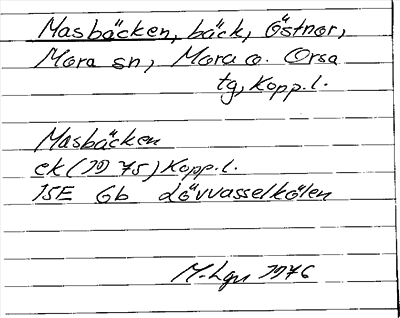 Masbäcken, bäck, Östnor,
Mora sn, Mora o. Orsa
tg, Kopp.l.
Masbäcken
ek (1975) Kopp.l.
15E Gb Lövvasselkölen
M. Lgn 1976